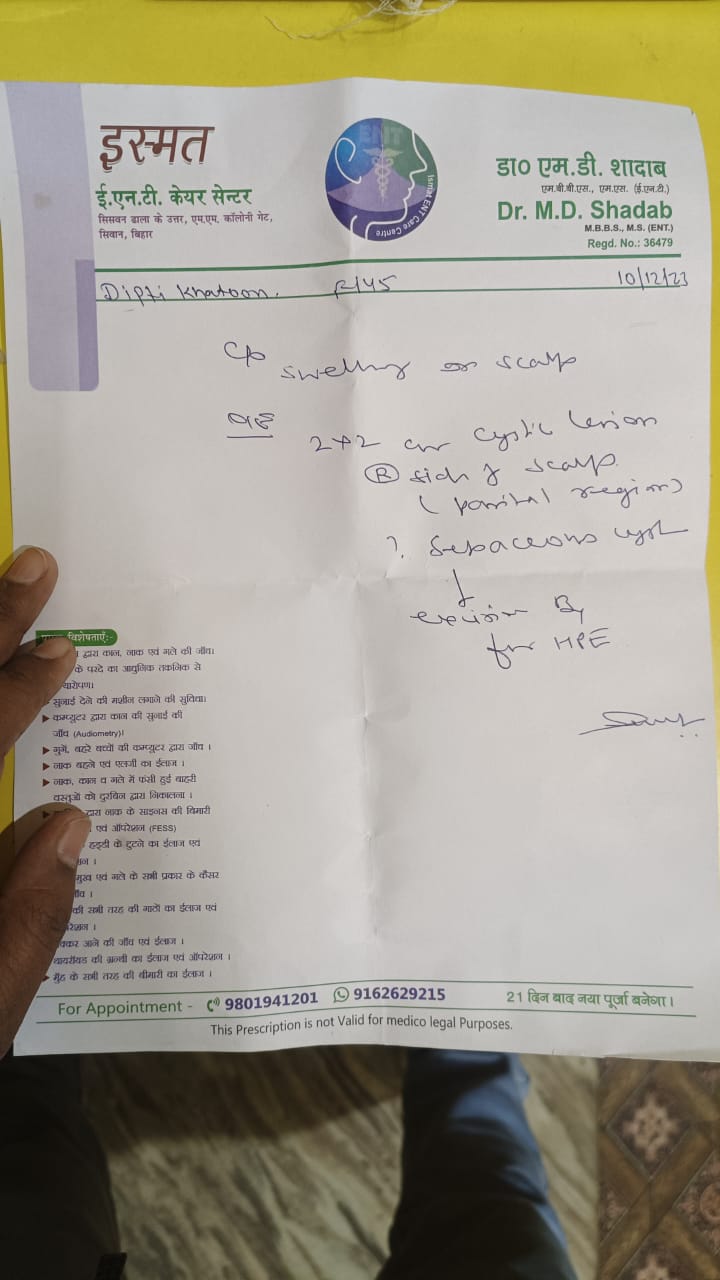 इस्मत
ई.एन.टी. केयर सेन्टर
सिसवन ढाला के उत्तर, एम.एम. कॉलोनी गेट,
सिवान, बिहार
ENT
Ismat ENT Care Centre
डा० एम.डी. शादाब
एम.बी.बी.एस., एम.एस. (ई.एन.टी.)
Dr. M.D. Shadab
M.B.B.S., M.S. (ENT.)
Regd. No.: 36479
Dipti Khatoon. F/45 10/12/23
C/o swelling on scalp
2x2 cm cystic lesion
(R) side of scalp.
(parital region)
?. Sebaceous cyst
↓
excision By
for HPE
विशेषताएँ:-
द्वारा कान, नाक एवं गले की जाँच।
के परदे का आधुनिक तकनिक से
सुनाई देने की मशीन लगाने की सुविधा।
कम्प्यूटर द्वारा कान की सुनाई की
जाँच (Audiometry)।
गूगें, बहरे बच्चों की कम्प्यूटर द्वारा जाँच ।
नाक बहने एवं एलर्जी का ईलाज ।
नाक, कान व गले में फंसी हुई बाहरी
वस्तूओं को दुरबिन द्वारा निकालना ।
द्वारा नाक के साइनस की बिमारी
एवं ऑपरेशन (FESS)
हड्डी के टुटने का ईलाज एवं
मुख एवं गले के सभी प्रकार के कैंसर
की सभी तरह की गाठों का ईलाज एवं
चक्कर आने की जाँच एवं ईलाज ।
थायरॉयड की ग्रन्थी का ईलाज एवं ऑपरेशन ।
मुँह के सभी तरह की बीमारी का ईलाज ।
For Appointment - 9801941201 9162629215 21 दिन बाद नया पूर्जा बनेगा ।
This Prescription is not Valid for medico legal Purposes.